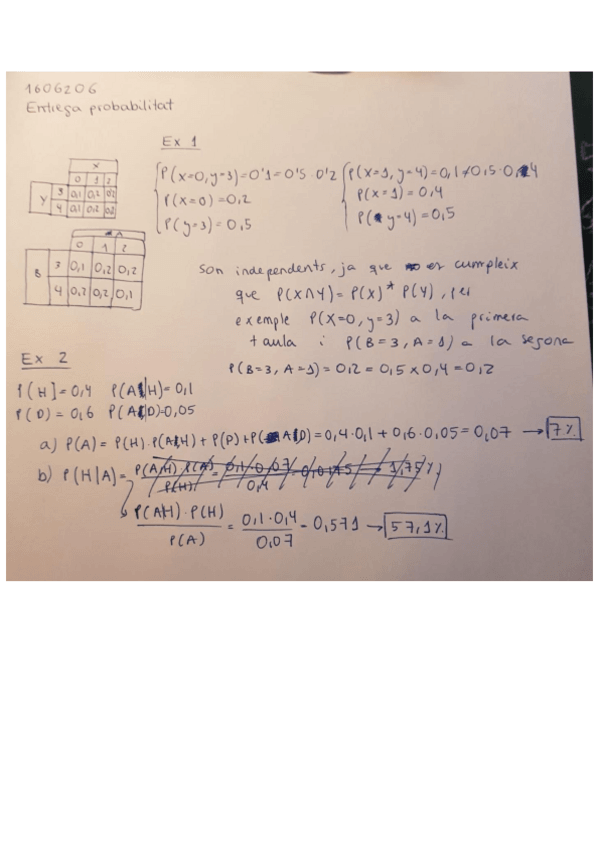 1606206
Entrega probabilitat
Ex 1
X
0 1 2
Y 3 0,1 0,2 0,2
4 0,1 0,2 0,2
P(x=0, y=3)=0'1=0'5·0'2
P(x=0)=0,2
P(y=3)=0,5
P(x=1, y=4)=0,1≠0,5·0,4
P(x=1)=0,4
P(y=4)=0,5
A
0 1 2
B 3 0,1 0,2 0,2
4 0,2 0,2 0,1
Són independents, ja que es cumpleix
que P(X∩Y)=P(X)*P(Y), per
exemple P(X=0, y=3) a la primera
taula i P(B=3, A=1) a la segona
P(B=3, A=1)=0,2=0,5×0,4=0,2
Ex 2
P(H)=0,4 P(A|H)=0,1
P(D)=0,6 P(A|D)=0,05
a) P(A)=P(H)·P(A|H)+P(D)+P(A|D)=0,4·0,1+0,6·0,05=0,07 → 7%
b) P(H|A)=
P(A|H)·P(H) / P(A) = 0,1·0,4 / 0,07 = 0,571 → 57,1%